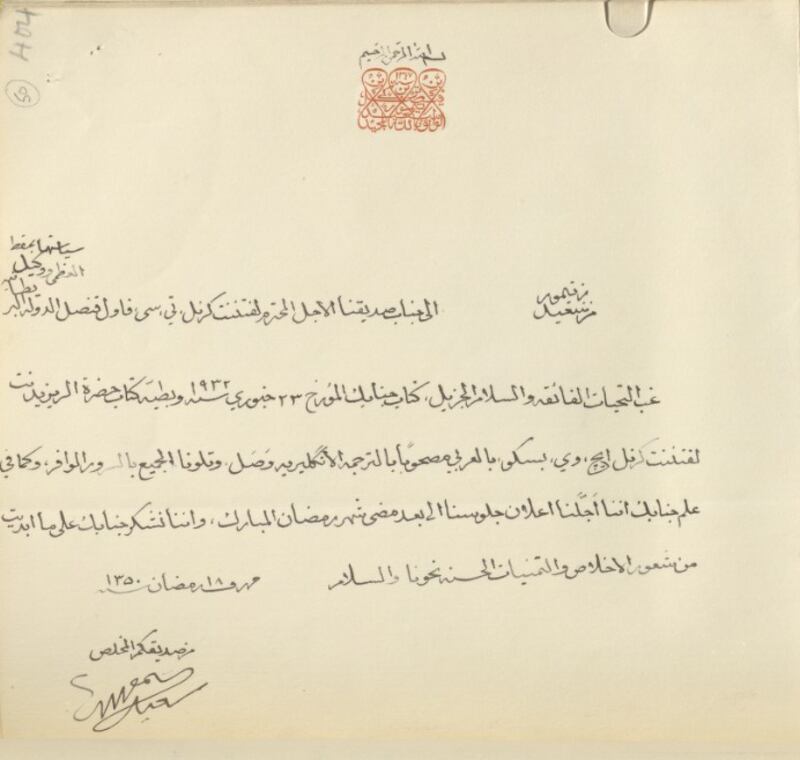 404
بسم الله الرحمن الرحيم
من سعيد بن تيمور
الى جناب صديقنا الأجل المحترم لفتننت كرنل، تي، سى، فاول قنصل الدولة البريطانية العظمى ووكيل سياستها بمسقط
غب التحيات الفائقه والسلام الجزيل، كتاب جنابك المؤرخ ٢٣ جنوري سنة ١٩٣٢ وبطيّه كتاب حضرة الريزيدنت
لفتننت كرنل ايچ، وي، بسكو، بالعربي مصحوباً بالترجمة الأنگليزيه وَصَل، وتلوفا الجميع بالسرور الوافر، وكما في
علم جنابك اننا أجّلنا اعلان جلوسنا الى بعد مضى شهر رمضان المبارك، واننا نشكر جنابك على ما ابديت
من شعور الاخلاص والتمنيات الحسنه نحونا والسلام
١٨ رمضان سنة ١٣٥٠
من صديقكم المخلص
سعيد بن تيمور